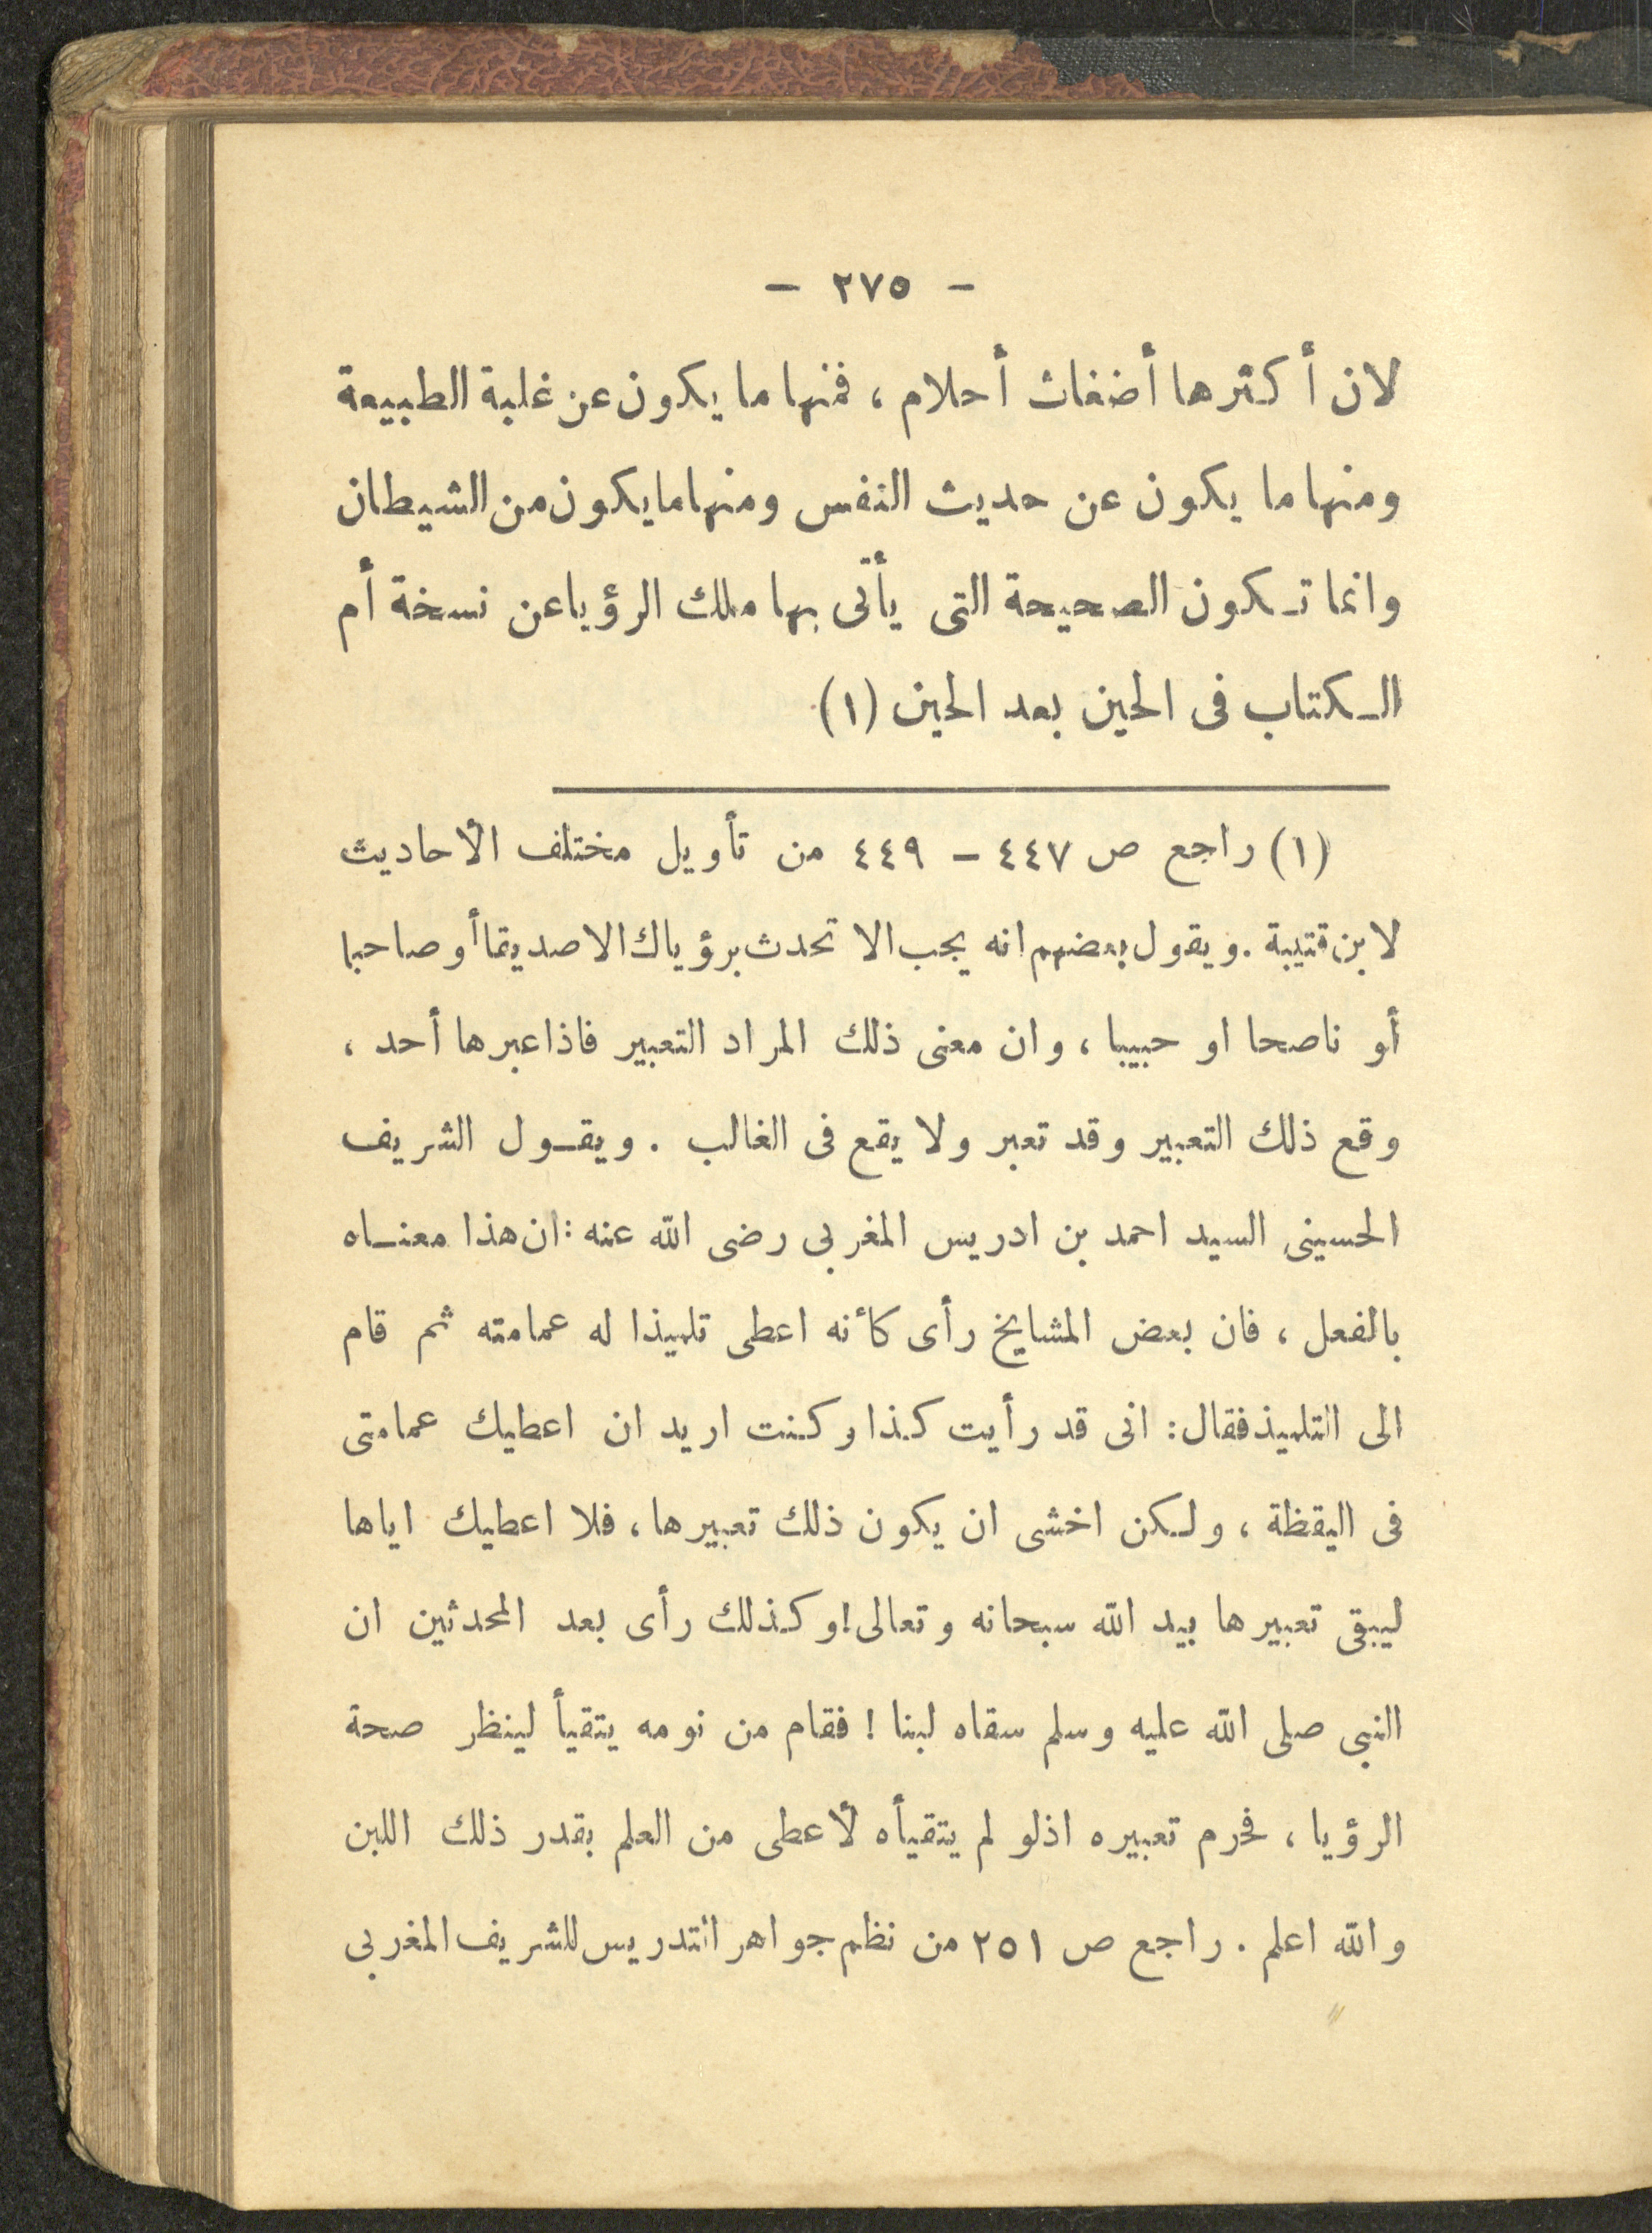 — ٢٧٥ —
لان أكثرها أضغاث أحلام ، فمنها ما يكون عن غلبة الطبيعة
ومنها ما يكون عن حديث النفس ومنها ما يكون من الشيطان
وانما تـكون الصحيحة التى يأتى بها ملك الرؤيا عن نسخة أم
الـكتاب فى الحين بعد الحين (١)
(١) راجع ص ٤٤٧ — ٤٤٩ من تأويل مختلف الأحاديث
لابن قتيبة . ويقول بعضهم انه يجب الا تحدث برؤياك الا صديقا أو صاحبا
أو ناصحا او حبيبا ، وان معنى ذلك المراد التعبير فاذا عبرها أحد ،
وقع ذلك التعبير وقد تعبر ولا يقع فى الغالب . ويقـول الشريف
الحسينى السيد احمد بن ادريس المغربى رضى الله عنه : ان هذا معنـاه
بالفعل ، فان بعض المشايخ رأى كأنه اعطى تلميذا له عمامته ثم قام
الى التلميذ فقال : انى قد رأيت كذا وكنت اريد ان اعطيك عمامتى
فى اليقظة ، ولـكن اخشى ان يكون ذلك تعبيرها ، فلا اعطيك اياها
ليبقى تعبيرها بيد الله سبحانه وتعالى ! وكذلك رأى بعد المحدثين ان
النبى صلى الله عليه وسلم سقاه لبنا ! فقام من نومه يتقيأ لينظر صحة
الرؤيا ، فحرم تعبيره اذلو لم يتقيأه لأعطى من العلم بقدر ذلك اللبن
والله اعلم . راجع ص ٢٥١ من نظم جواهر التدريس للشريف المغربى